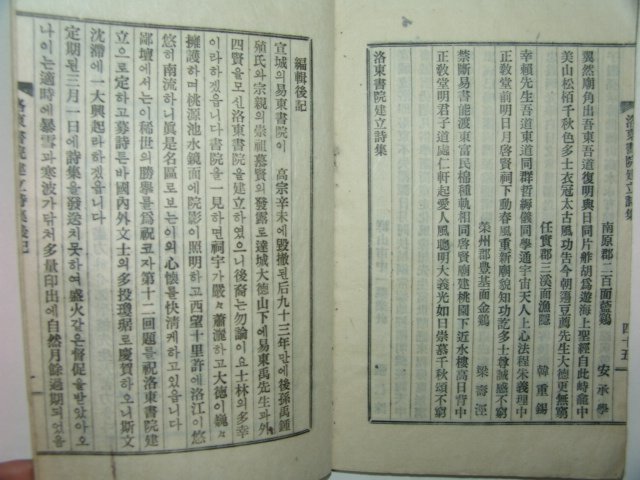 洛東書院建立詩集
四十五
南原郡二百面藍鷄 安承學
翼然廟角出吾東吾道復明與日同片舺胡爲遊海上聖經自此峙龕中
美山松栢千秋色多士衣冠太古風功告今朝籩豆薦先生大德更無窮
任實郡三溪面漁隱 韓重錫
幸賴先生吾道東道同群哲繹儀同學通宇宙天人上心法程朱義理中
正敎堂前明日月啓賢祠下動春風重新廟貌知功訖多士尊誠感不窮
榮州郡豊基面金鷄 梁壽涇
禁斷易書能渡東富民棉種軌相同啓賢廟建桃園下近水樓高日背中
正敎堂明君子道處仁軒起愛人風聰明大義光如日崇慕千秋頌不窮
洛東書院建立詩集
編輯後記
宣城의易東書院이 高宗辛未에毀撤된后九十三年만에後孫禹鍾
殖氏와宗親의崇祖慕賢의發露로達城大德山下에易東禹先生과外
四賢을모신洛東書院을建立하였으니後裔는勿論이요士林의多幸
이라하겠읍니다書院을一見하면祠宇가嚴々蕭灑하고大德이巍々
擁護하며桃源池水鏡面에院影이照明하고西望十里許에洛江이悠
悠히南流하니眞是名區로보는이의心懷를快淸케하고있읍니다
鄙壇에서는이稀世의勝擧를爲祝코자第十二回題를祝洛東書院建
立으로定하고募詩튼바國內外文士의多投瓊琚로慶賀하오니斯文
沈滯에一大興起라하겠읍니다
定期된三月一日에詩集을發送치못하여盛火갇은督促을받았아오
나이는適時에暴雪과寒波가닥처多量印出에自然月餘過期되었음
洛東書院建立詩集後記